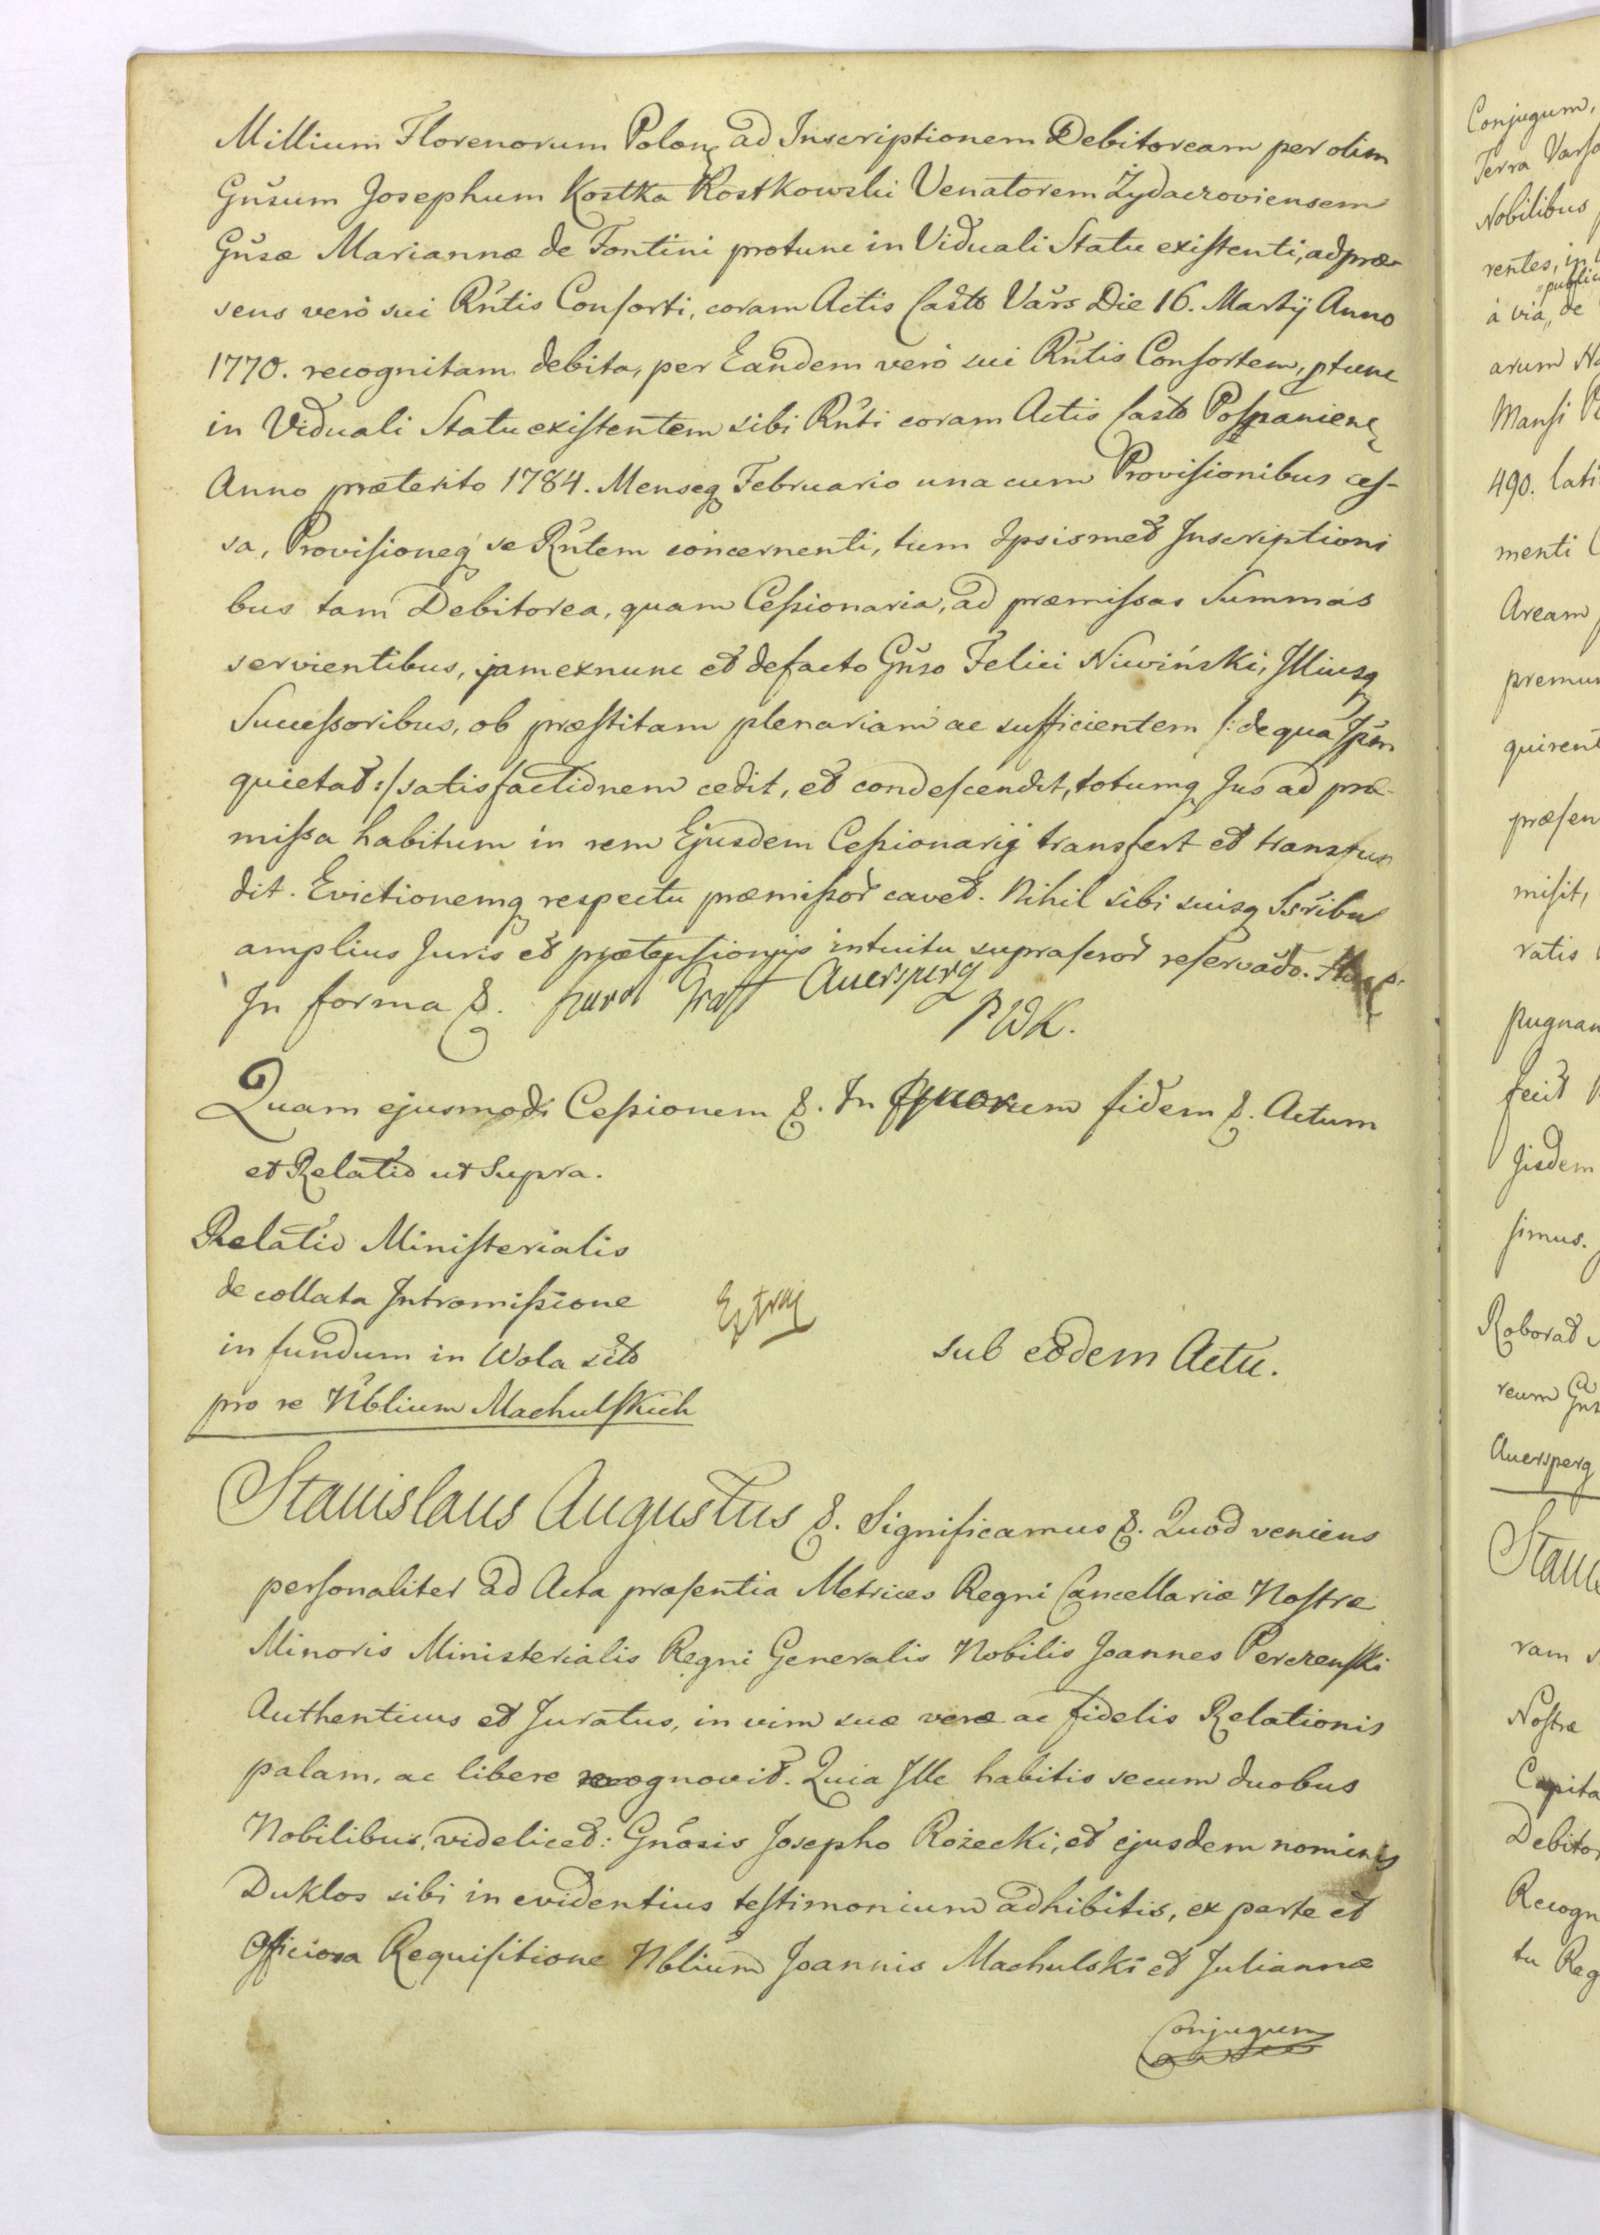 Millium Florenorum Polonꝫ ad Inscriptionem Debitoream per olim
Gn̄sum Josephum Kostka Rostkowski Venatorem Żydaczoviensem
Gn̄sæ Mariannæ de Fontini protunc in Viduali Statu existenti, ad præ-
sens verò sui Rn̄tis Consorti, coram Actis Castr̄ Vars̄ Die 16. Martÿ Anno
1770. recognitam debita, per Eandem verò sui Rn̄tis Consortem, ptunc
in Viduali Statu existentem sibi Rn̄ti coram Actis Castr̄
Anno præterito 1784. Menseq Februario una cum Provisionibus ces-
sa, Provisioneq se Rn̄tem concernenti, tum Ipsismet Inscriptioni
bus tam Debitorea, quam Cessionaria, ad præmissas Summas
servientibus, jam exnunc et defacto Gn̄so Felici Niwiński, Illiusq
Successoribus, ob præstitam plenariam ac sufficientem /: de qua Ipsm̄
quietat :/ satisfactionem cedit, et condescendit, totumq Jus ad præ-
missa habitum in rem Ejusdem Cessionarij transfert et transfun
dit. Evictionemq respectu præmissor̄ cavet. Nihil sibi suisq Ss̄ribus
amplius Juris et prætensionis intuitu supraser̄or̄ reservādo.
In forma &. Auersperg
PWK.
Quam ejusmodi Cessionem &. In quorum fidem &. Actum
et Relatio ut Supra.
Relatio Ministerialis
de collata Intromissione
in fundum in Wola sito
pro re N̄blium Machulskich
sub eodem Actu.
Stanislaus Augustus &. Significamus &. Quod veniens
personaliter ad Acta præsentia Metrices Regni Cancellariæ Nostræ
Minoris Ministerialis Regni Generalis Nobilis Joannes Perczenski
Authenticus et Juratus, in vim suæ veræ ac fidelis Relationis
palam, ac libere recognovit. Quia Ille habitis secum duobus
Nobilibus, videlicet: Gn̄osis Josepho Rożecki, et ejusdem nominis
Duklos sibi in evidentius testimonium adhibitis, ex parte et
Officiosa Requisitione Nblium Joannis Machulski et Juliannæ
Conjugum
Conjugum,
Terra
Nobilibus
rentes, in
publica
à via, de
arum
Mansi
490. lati
menti
Aream
premu
quirent
præsen
misit,
ratis
pugnan
fecit
Jisdem
simus.
Roborat
reum
Auersperg
Stani
ram
Nostræ
Capita
Debitor
Recogn
tu Reg